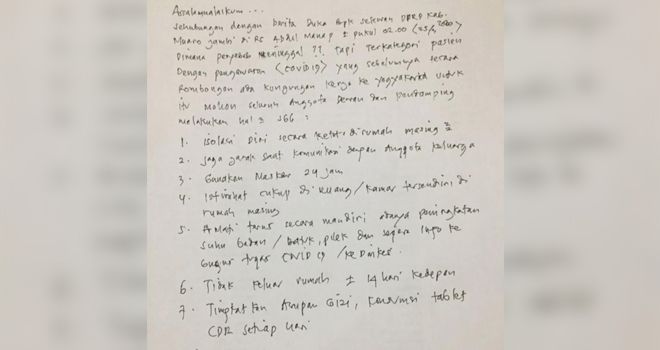 Assalamualaikum ...
Sehubungan dengan berita Duka Bpk setewan DPRD Kab.
Muaro Jambi di RS Abdul Manap ± pukul 02.00 (25/3 2020)
Dimana penyebab meninggal ?? tapi terkategori pasien
Dengan pengawasan (covid19) yang sebelumnya secara
Rombongan ada kungungan kerja ke yogyakarta untuk
itu mohon seluruh anggota Dewan dan pendamping
melakukan hal² sbb :
1. isolasi Diri secara ketat di rumah masing²
2. Jaga jarak saat komunikasi dengan Anggota keluarga
3. Gunakan Masker 24 jam
4. Istirahat cukup di ruang / kamar tersendiri di
rumah masing
5. Amati terus secara mandiri adanya peningkatan
suhu badan / batuk, pilek dan segera Info ke
Gugus tugas COVID 19 / ke Dinkes.
6. Tidak keluar rumah ± 14 Hari kedepan
7. Tingkatkan Asupan Gizi, konsumsi tablet
CDR setiap hari